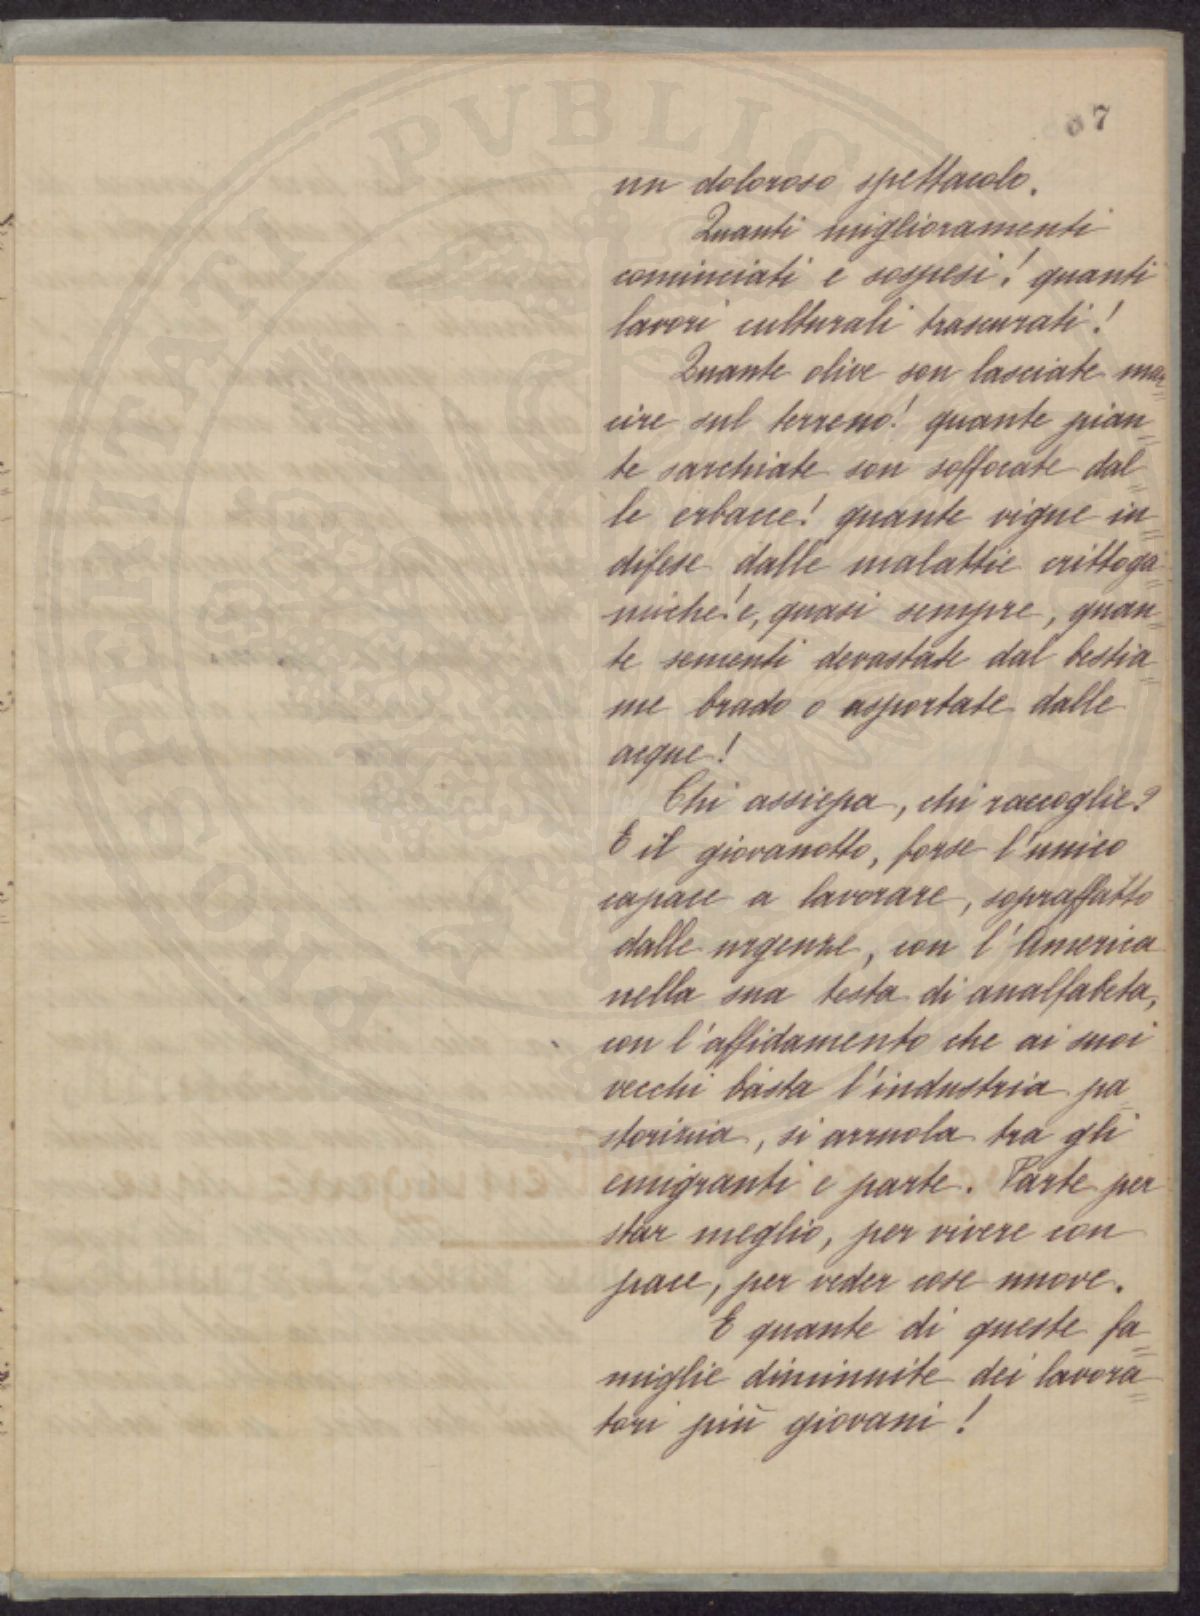 67
un doloroso spettacolo.
Quanti miglioramenti
cominciati e sospesi! quanti
lavori culturali trascurati!
Quante olive son lasciate mar=
cire sul terreno! quante pian=
te sarchiate son soffocate dal=
le erbacce! quante vigne in=
difese dalle malattie crittoga=
miche! e, quasi sempre, quan=
te sementi devastate dal bestia=
me brado o asportate dalle
acque!
Chi assiepa, chi raccoglie?
E il giovanotto, forse l'unico
capace a lavorare, sopraffatto
dalle urgenze, con l'America
nella sua testa di analfabeta,
con l'affidamento che ai suoi
vecchi basta l'industria pa=
storizia, si arruola tra gli
emigranti e parte. Parte per
star meglio, per vivere con
pace, per veder cose nuove.
E quante di queste fa=
miglie diminuite dei lavora=
tori più giovani!
PROSPERITATI PVBLIC